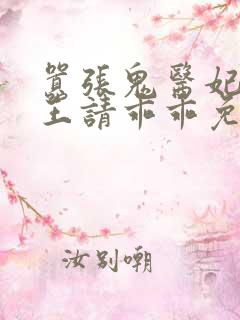 囂張鬼醫妃
王請乖乖免
汝別嘲